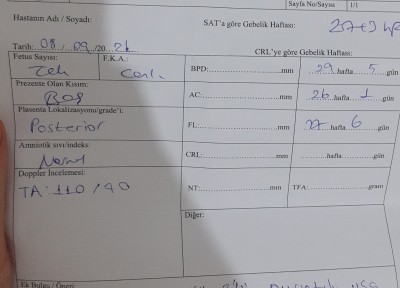 Sayfa No/Sayısı 1/1
Hastanın Adı / Soyadı: SAT'a göre Gebelik Haftası: 27+3 hf
Tarih: 08 / 09 /20 21 CRL'ye göre Gebelik Haftası:
Fetus Sayısı: F.K.A.:
Tek Canlı BPD: mm 29 hafta 5 gün
Prezente Olan Kısım:
Baş AC: mm 26 hafta 1 gün
Plasenta Lokalizasyonu/grade'i:
Posterior FL: mm 27 hafta 6 gün
Amniotik sıvı/indeks:
Normal CRL: mm hafta gün
Doppler İncelemesi:
TA: 110 / 90 NT: mm TFA: gram
Diğer:
Ek Bulgu / Öneri